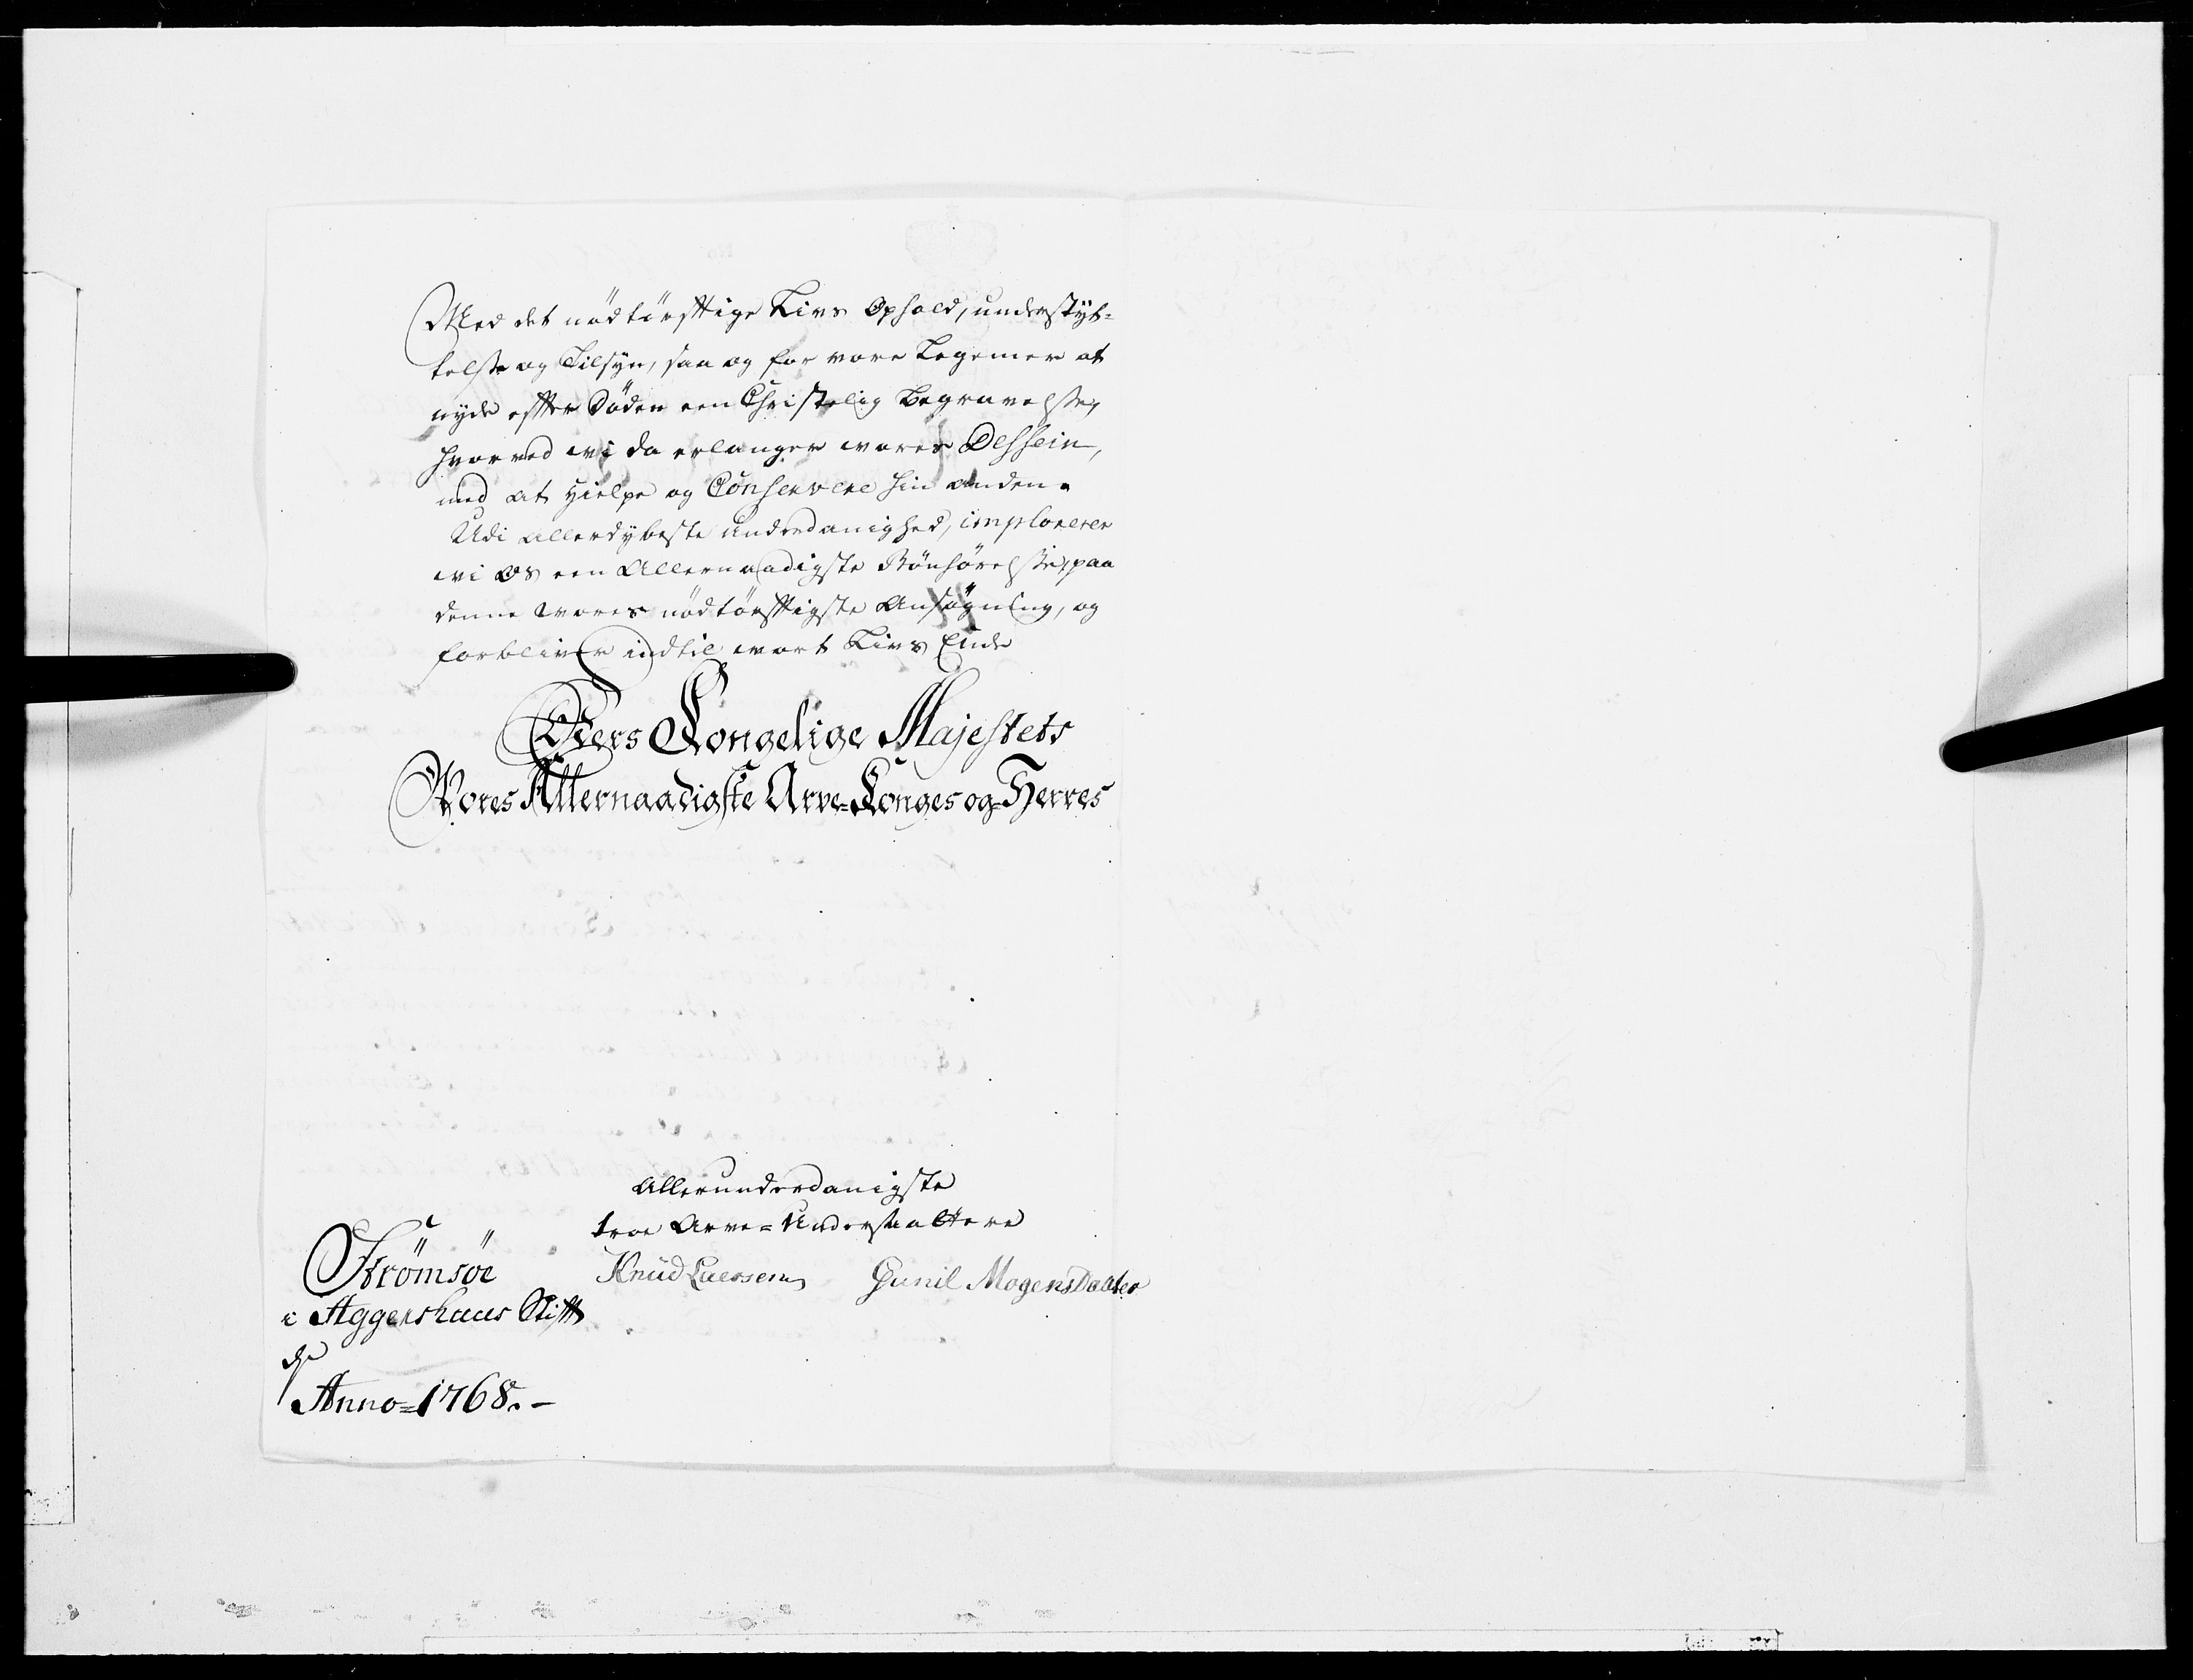 Med det nödtörfftige Livs Ophold, understyt-
telsse og Tilsyn, saa og for vore Legemer at
nyde effter Döden een Christelig Begravelsse,
hvorved wi da erlanger wores Dessein,
med at Hielpe og Conservere hin anden.
Udi allerdybeste underdanighed, implorerer
wi Os een Allernaadigste Bönhörelsse, paa
denne wores nödtörfftigste Ansögning, og
forbliver indtil wort Livs Ende
Deers Kongelige Majestets
Wores Allernaadigste Arve-Konges og Herres
Allerunderdanigste
troe Arve-Undersaattere
Strömsöe
Knud Laersen Gunil MogensDaatter
i Aggershuus Stifft
d
Anno=1768.-